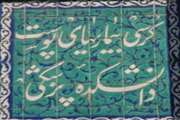 کرسی بیماریهای پوست
دانشکده پزشکی